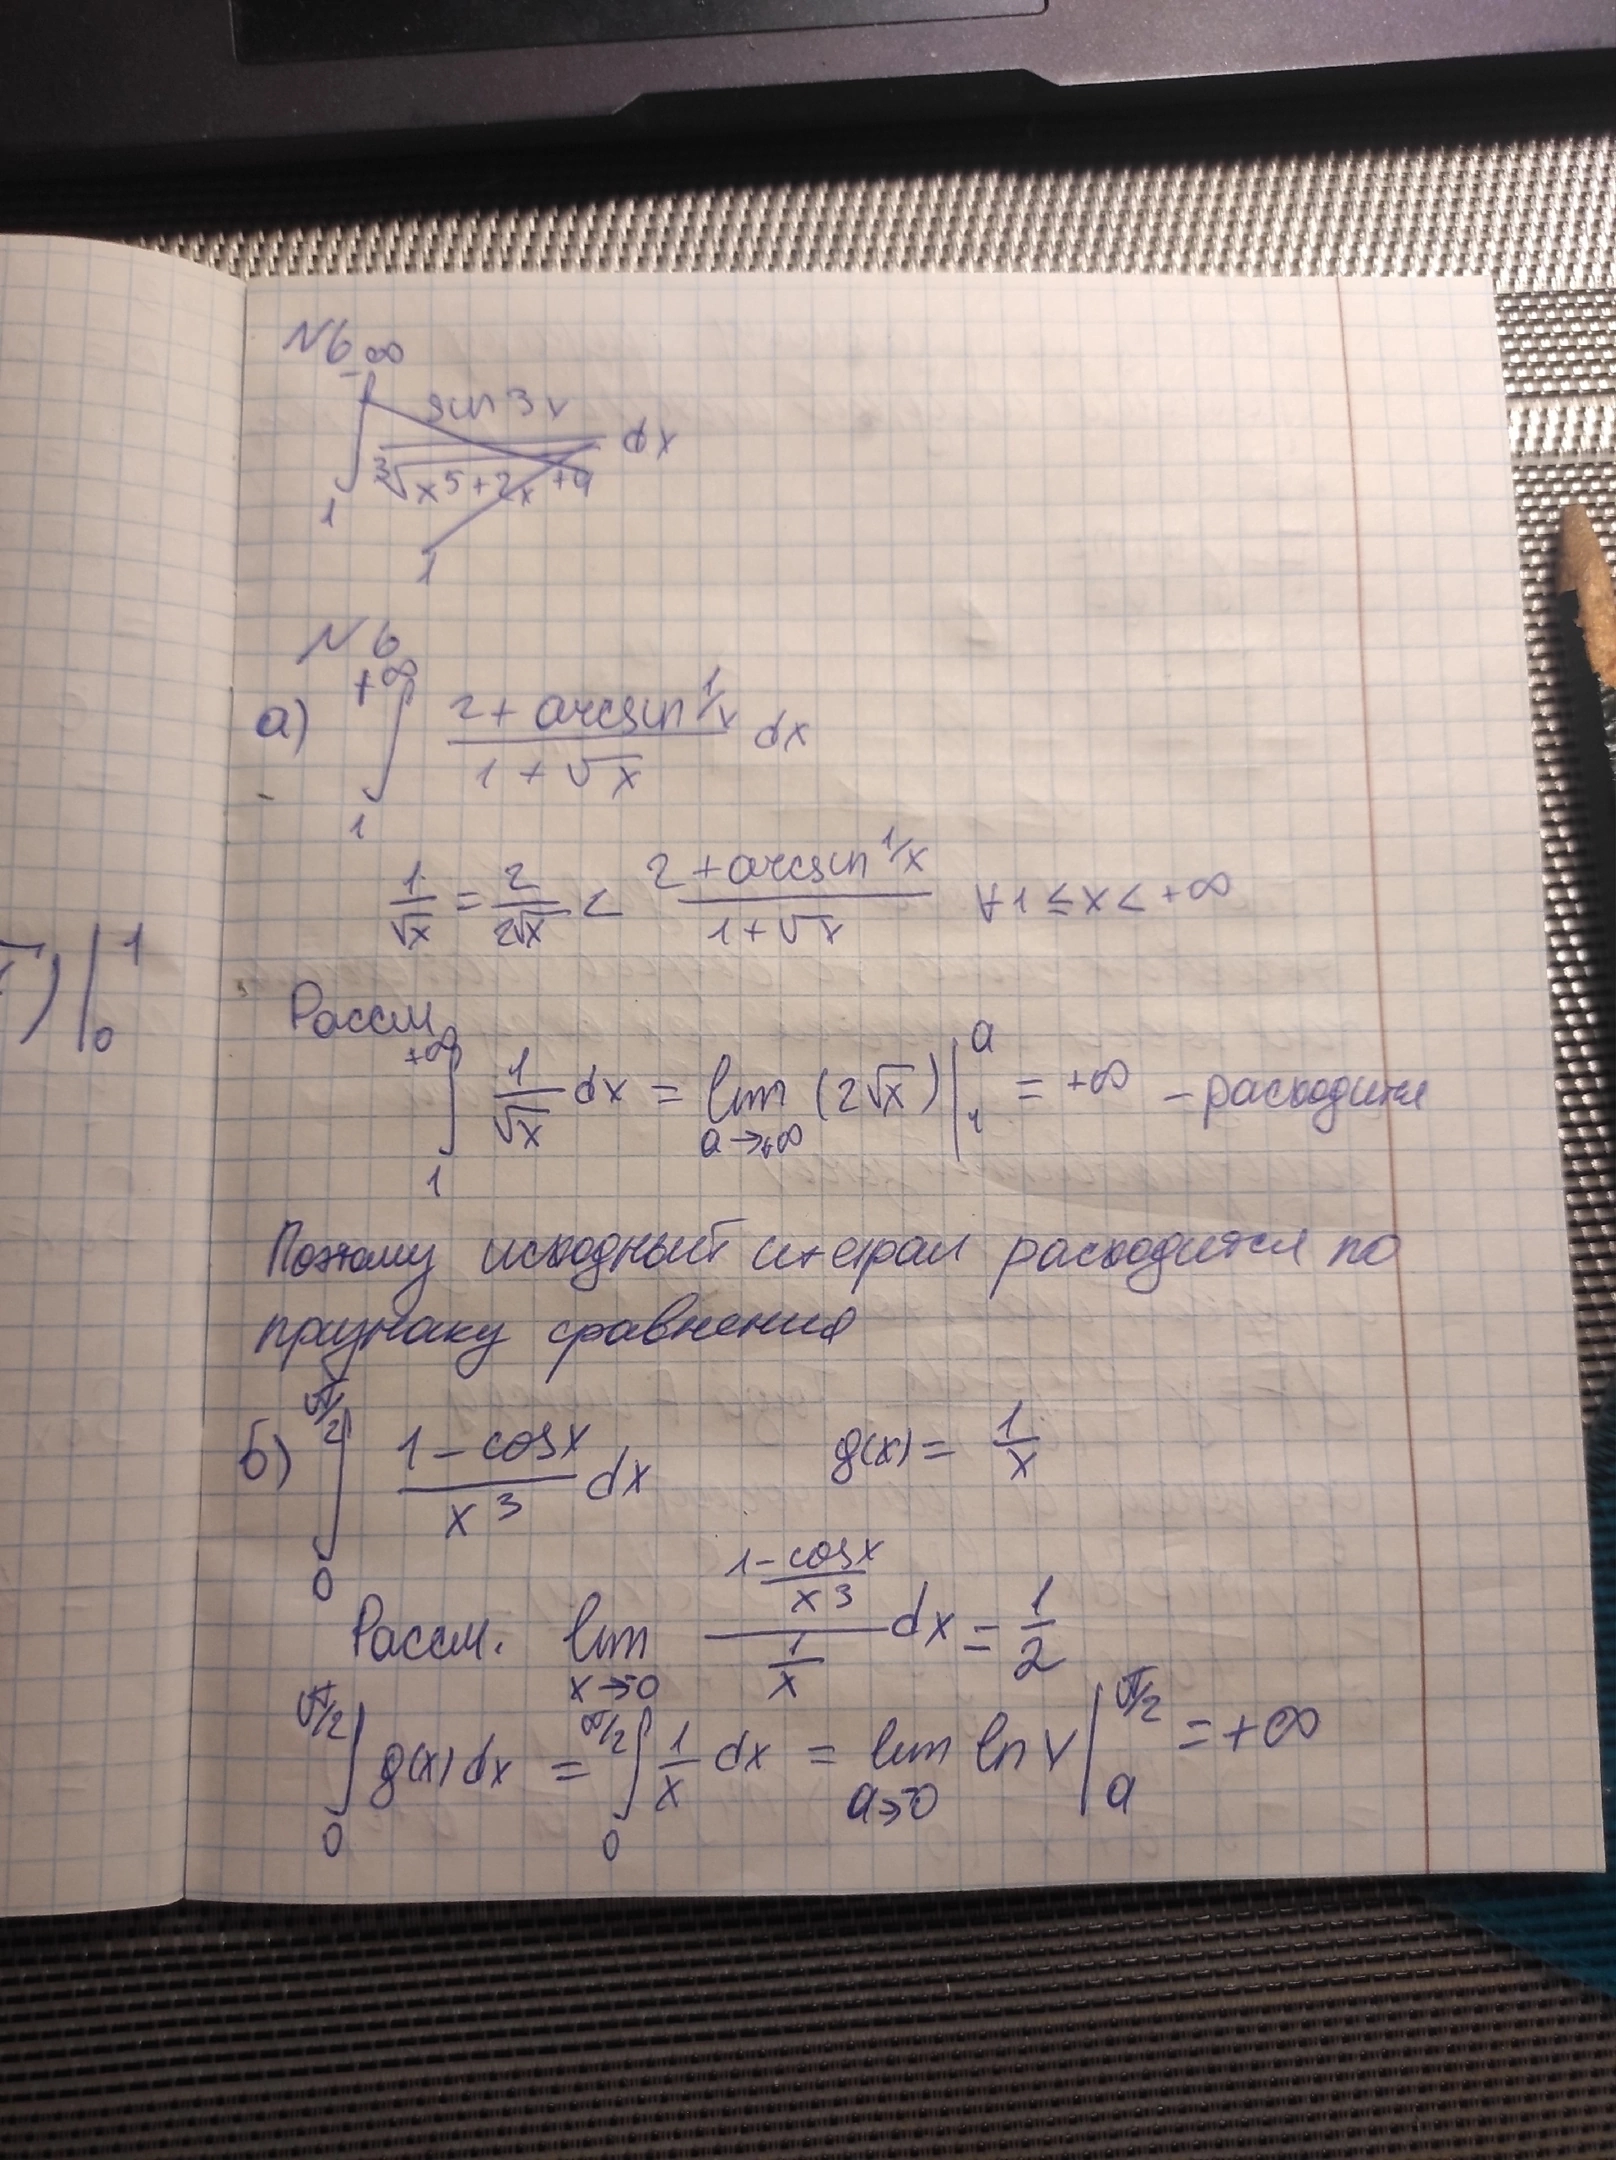 N6
+∞
∫ sin3x / ∛(x^5+2x+9) dx
1
1
N6
а) ∫_1^{+∞} (2+arcsin 1/x)/(1+√x) dx
1/√x = 2/(2√x) < (2+arcsin 1/x)/(1+√x) ∀1≤x<+∞
Рассм.
∫_1^{+∞} 1/√x dx = lim_{a→+∞} (2√x)|_1^a = +∞ – расходится
Поэтому исходный интеграл расходится по
признаку сравнения
б) ∫_0^{π/2} (1-cosx)/x^3 dx g(x)= 1/x
Рассм. lim_{x→0} ((1-cosx)/x^3)/(1/x) dx = 1/2
∫_0^{π/2} g(x)dx = ∫_0^{π/2} 1/x dx = lim_{a→0} ln x |_a^{π/2} = +∞
)|_0^1